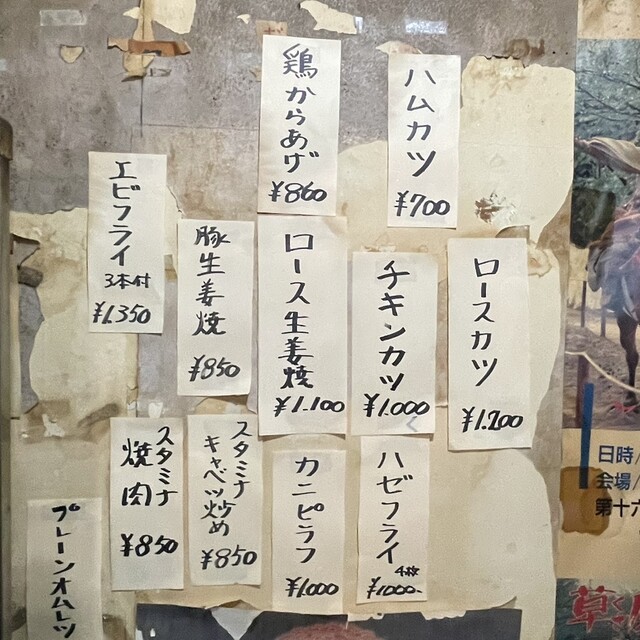 鶏からあげ
¥860
ハムカツ
¥700
エビフライ
3本付
¥1.350
豚生姜焼
¥850
ロース生姜焼
¥1.100
チキンカツ
¥1.000
ロースカツ
¥1.200
スタミナ
焼肉
¥850
スタミナ
キャベツ炒め
¥850
カニピラフ
¥1.000
ハゼフライ
4枚
¥1000-
プレーンオムレツ
日時/
会場/
第十六
草